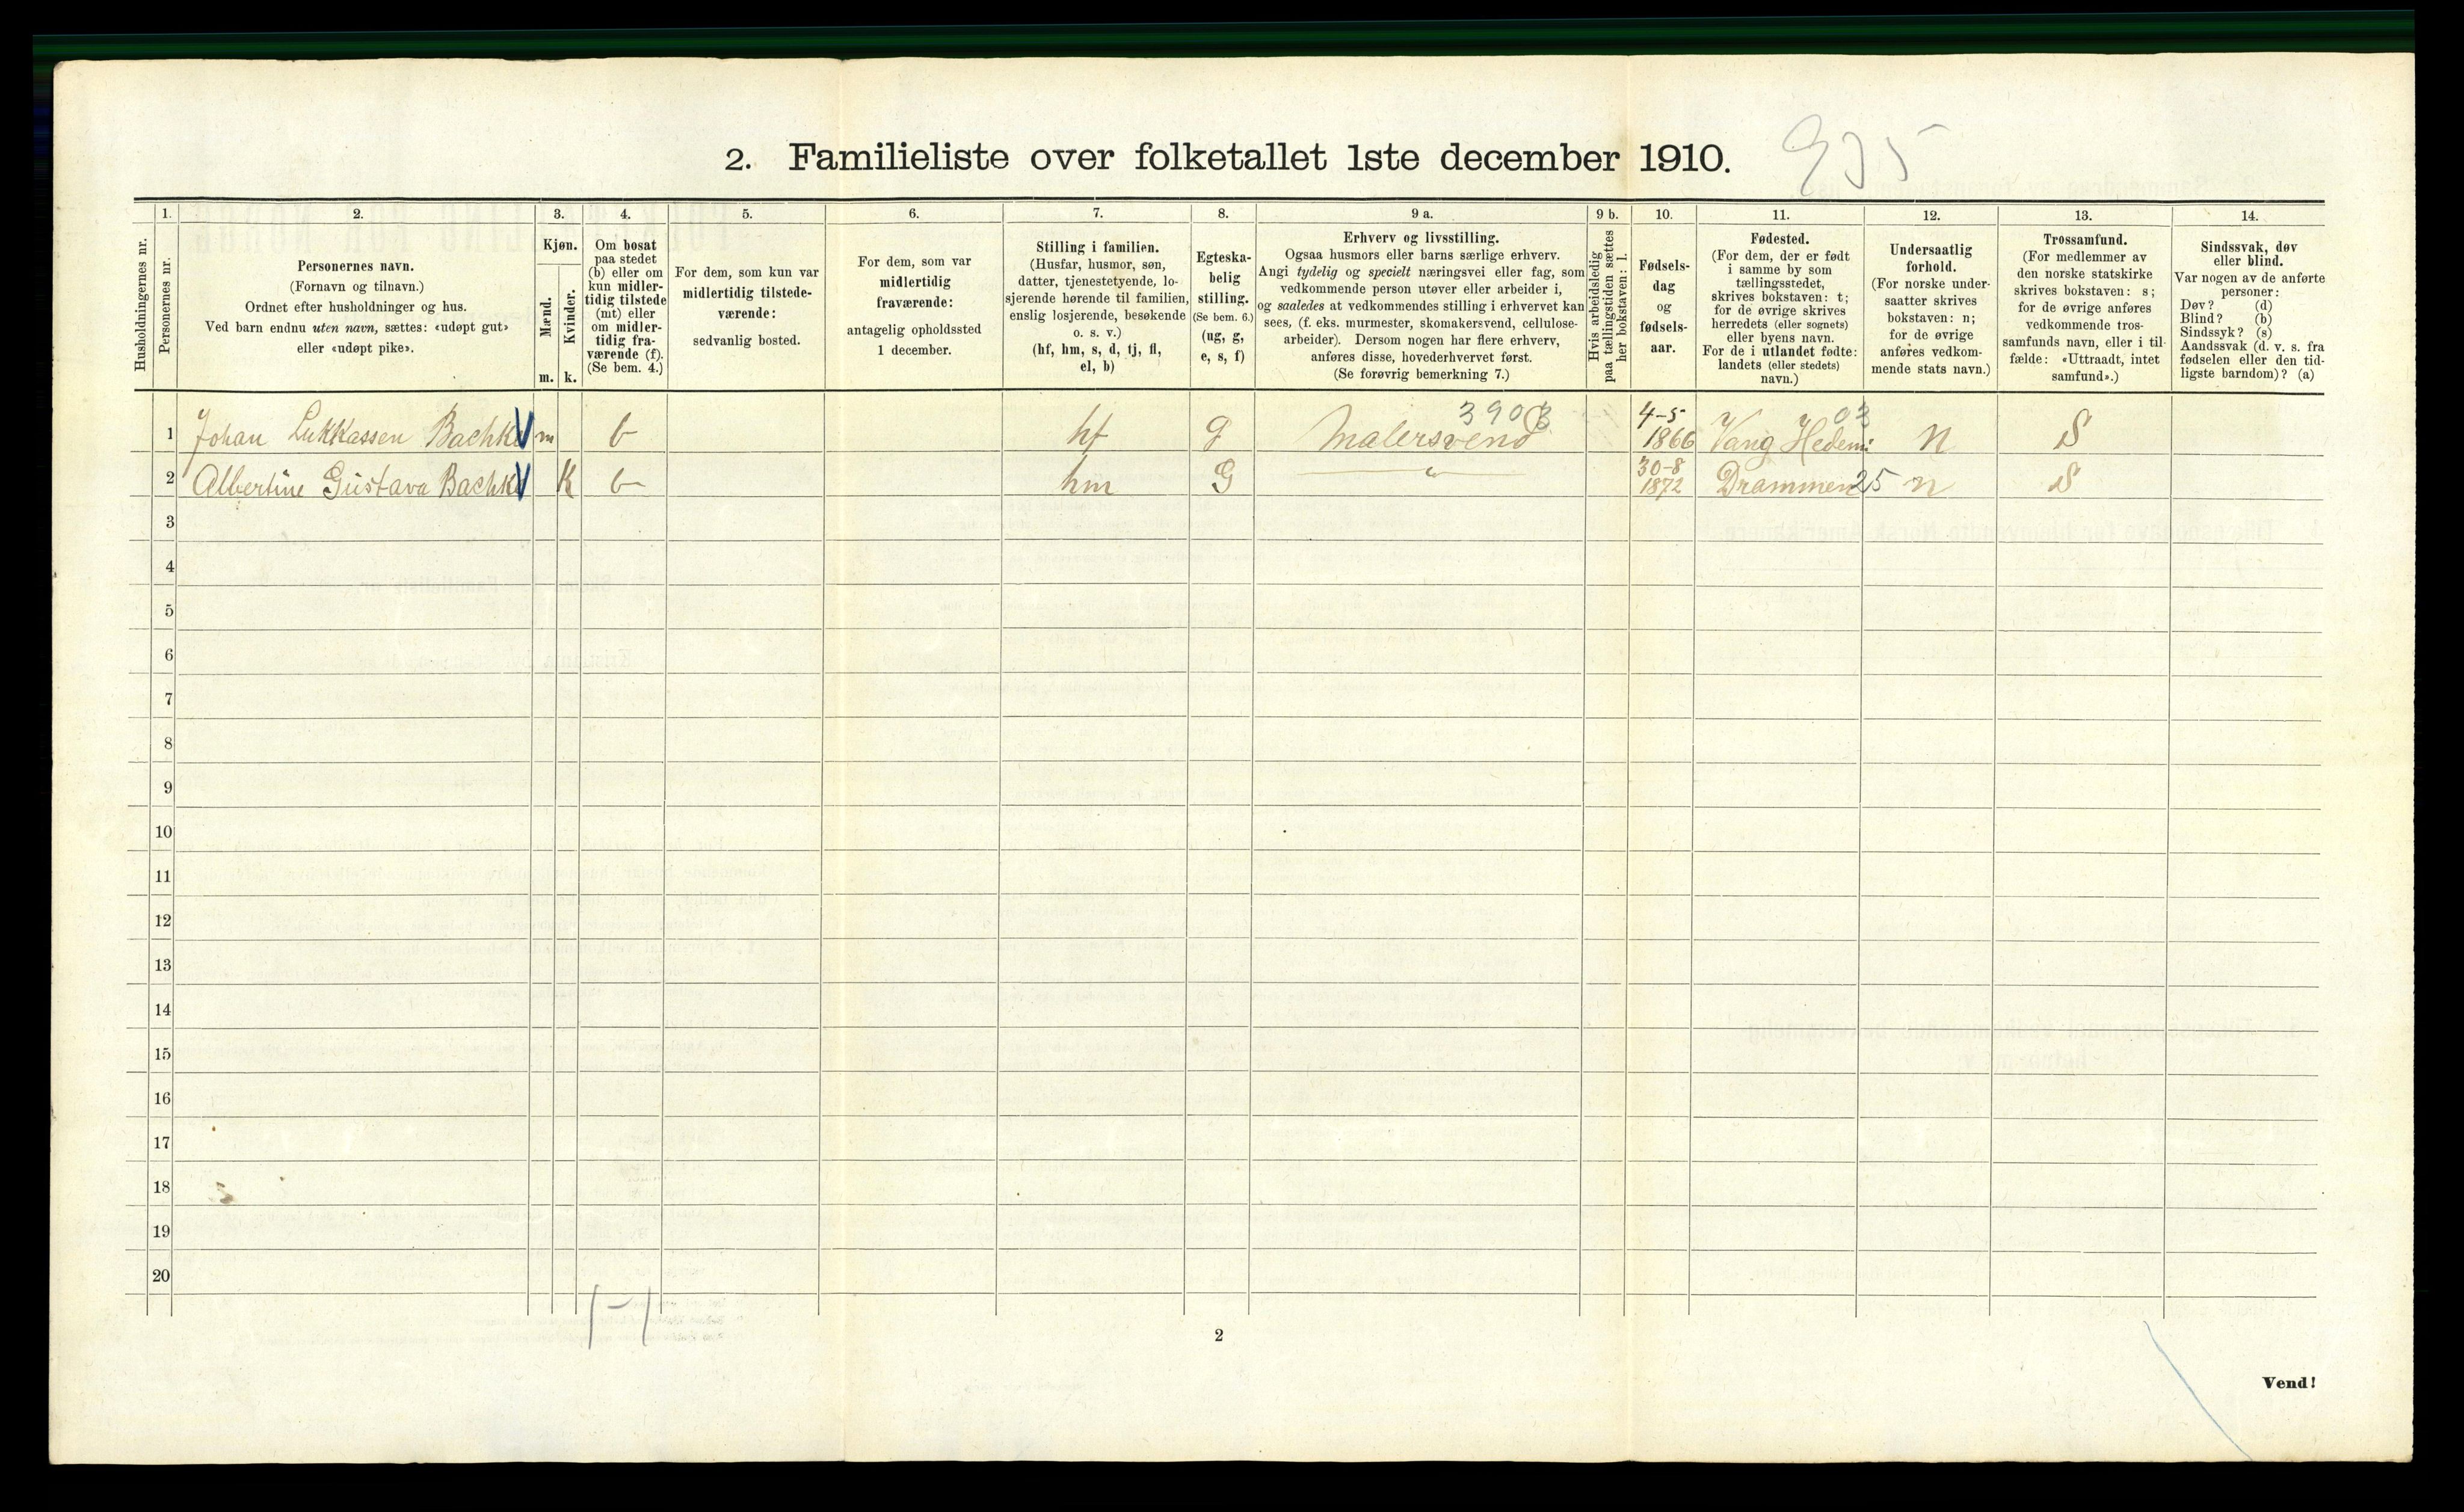 2. Familieliste over folketallet 1ste december 1910.
Husholdningernes nr.
1.
Personernes nr.
2.
Personernes navn.
(Fornavn og tilnavn.)
Ordnet efter husholdninger og hus.
Ved barn endnu uten navn, sættes: «udøpt gut»
eller «udøpt pike».
3.
Kjøn.
Mænd.
Kvinder.
m. k.
4.
Om bosat
paa stedet
(b) eller om
kun midler-
tidig tilstede
(mt) eller
om midler-
tidig fra-
værende (f).
(Se bem. 4.)
5.
For dem, som kun var
midlertidig tilstede-
værende:
sedvanlig bosted.
6.
For dem, som var
midlertidig
fraværende:
antagelig opholdssted
1 december.
7.
Stilling i familien.
(Husfar, husmor, søn,
datter, tjenestetyende, lo-
sjerende hørende til familien,
enslig losjerende, besøkende
o. s. v.)
(hf, hm, s, d, tj, fl,
el, b)
8.
Egteska-
belig
stilling.
(Se bem. 6.)
(ug, g,
e, s, f)
9 a.
Erhverv og livsstilling.
Ogsaa husmors eller barns særlige erhverv.
Angi tydelig og specielt næringsvei eller fag, som
vedkommende person utøver eller arbeider i,
og saaledes at vedkommendes stilling i erhvervet kan
sees, (f. eks. murmester, skomakersvend, cellulose-
arbeider). Dersom nogen har flere erhverv,
anføres disse, hovederhvervet først.
(Se forøvrig bemerkning 7.)
9 b.
Hvis arbeidsledig
paa tællingstiden sættes
her bokstaven: l.
10.
Fødsels-
dag
og
fødsels-
aar.
11.
Fødested.
(For dem, der er født
i samme by som
tællingsstedet,
skrives bokstaven: t;
for de øvrige skrives
herredets (eller sognets)
eller byens navn.
For de i utlandet fødte:
landets (eller stedets)
navn.)
12.
Undersaatlig
forhold.
(For norske under-
saatter skrives
bokstaven: n;
for de øvrige
anføres vedkom-
mende stats navn.)
13.
Trossamfund.
(For medlemmer av
den norske statskirke
skrives bokstaven: s;
for de øvrige anføres
vedkommende tros-
samfunds navn, eller i til-
fælde: «Uttraadt, intet
samfund».)
14.
Sindssvak, døv
eller blind.
Var nogen av de anførte
personer:
Døv? (d)
Blind? (b)
Sindssyk? (s)
Aandssvak (d. v. s. fra
fødselen eller den tid-
ligste barndom)? (a)
1 Johan Lukkassen Bachke m b hf g Malersvend 3903 4-5 1866 Vang Hedem: 03 n S
2 Albertine Gustava Bachke K b hm G " 30-8 1872 Drammen 25 n S
3
4
5
6
7
8
9
10
11
12
13
14
15
16
17
18
19
20
1-1
2
Vend!